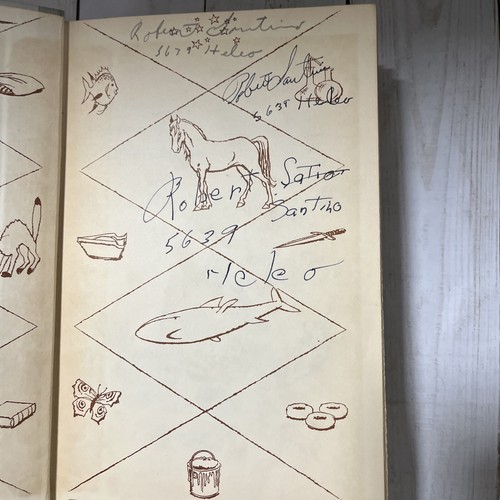 Robert Santino
5639 Heleo
Robert Santino
5639 Heleo
Robert Santo
Santino
5639
Heleo